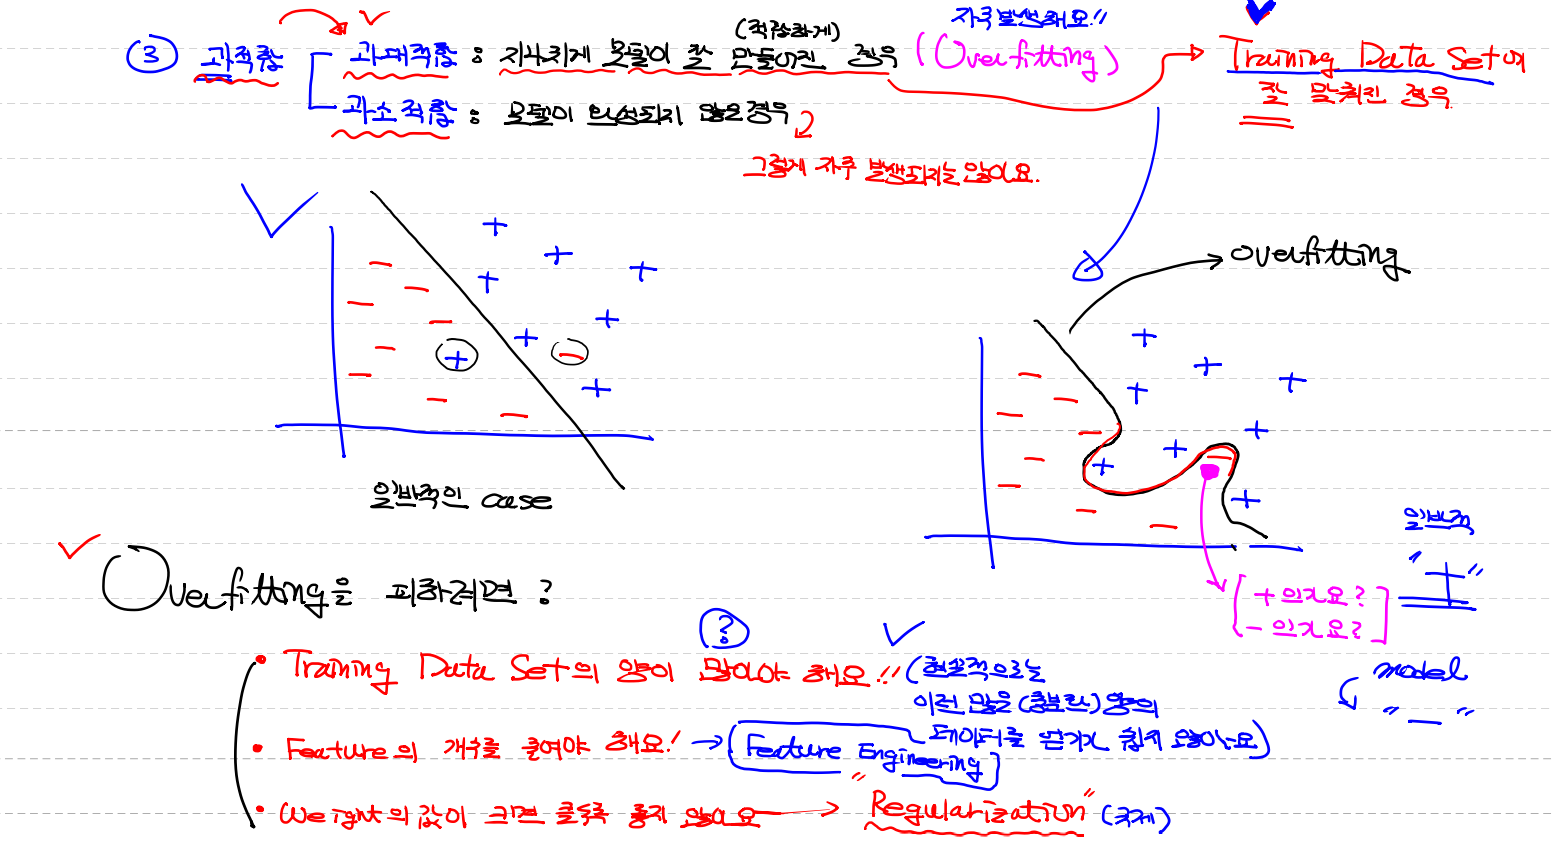 자주발생해요!!
(적합하게)
③ 과적합 과대적합 : 지나치게 모델이 잘 만들어진 경우 (Overfitting) Training Data Set에
잘 맞춰진 경우
과소적합 : 모델이 완성되지 않은경우
그렇게 자주 발생되지는 않아요.
+ + + + + + + +
- - - - - - - -
일반적인 case
overfitting
+ + + + + + + +
- - - - - - - -
일반적
"+"
[ + 인가요?
- 인가요? ]
model
" - "
Overfitting을 피하려면 ?
?
• Training Data Set의 양이 많아야 해요!! (현실적으로는
이런 많은(충분한)양의
데이터를 얻기가 쉽지 않아요)
• Feature의 개수를 줄여야 해요! → Feature Engineering
• Weight의 값이 크면 클수록 좋지 않아요 → "Regularization" (규제)